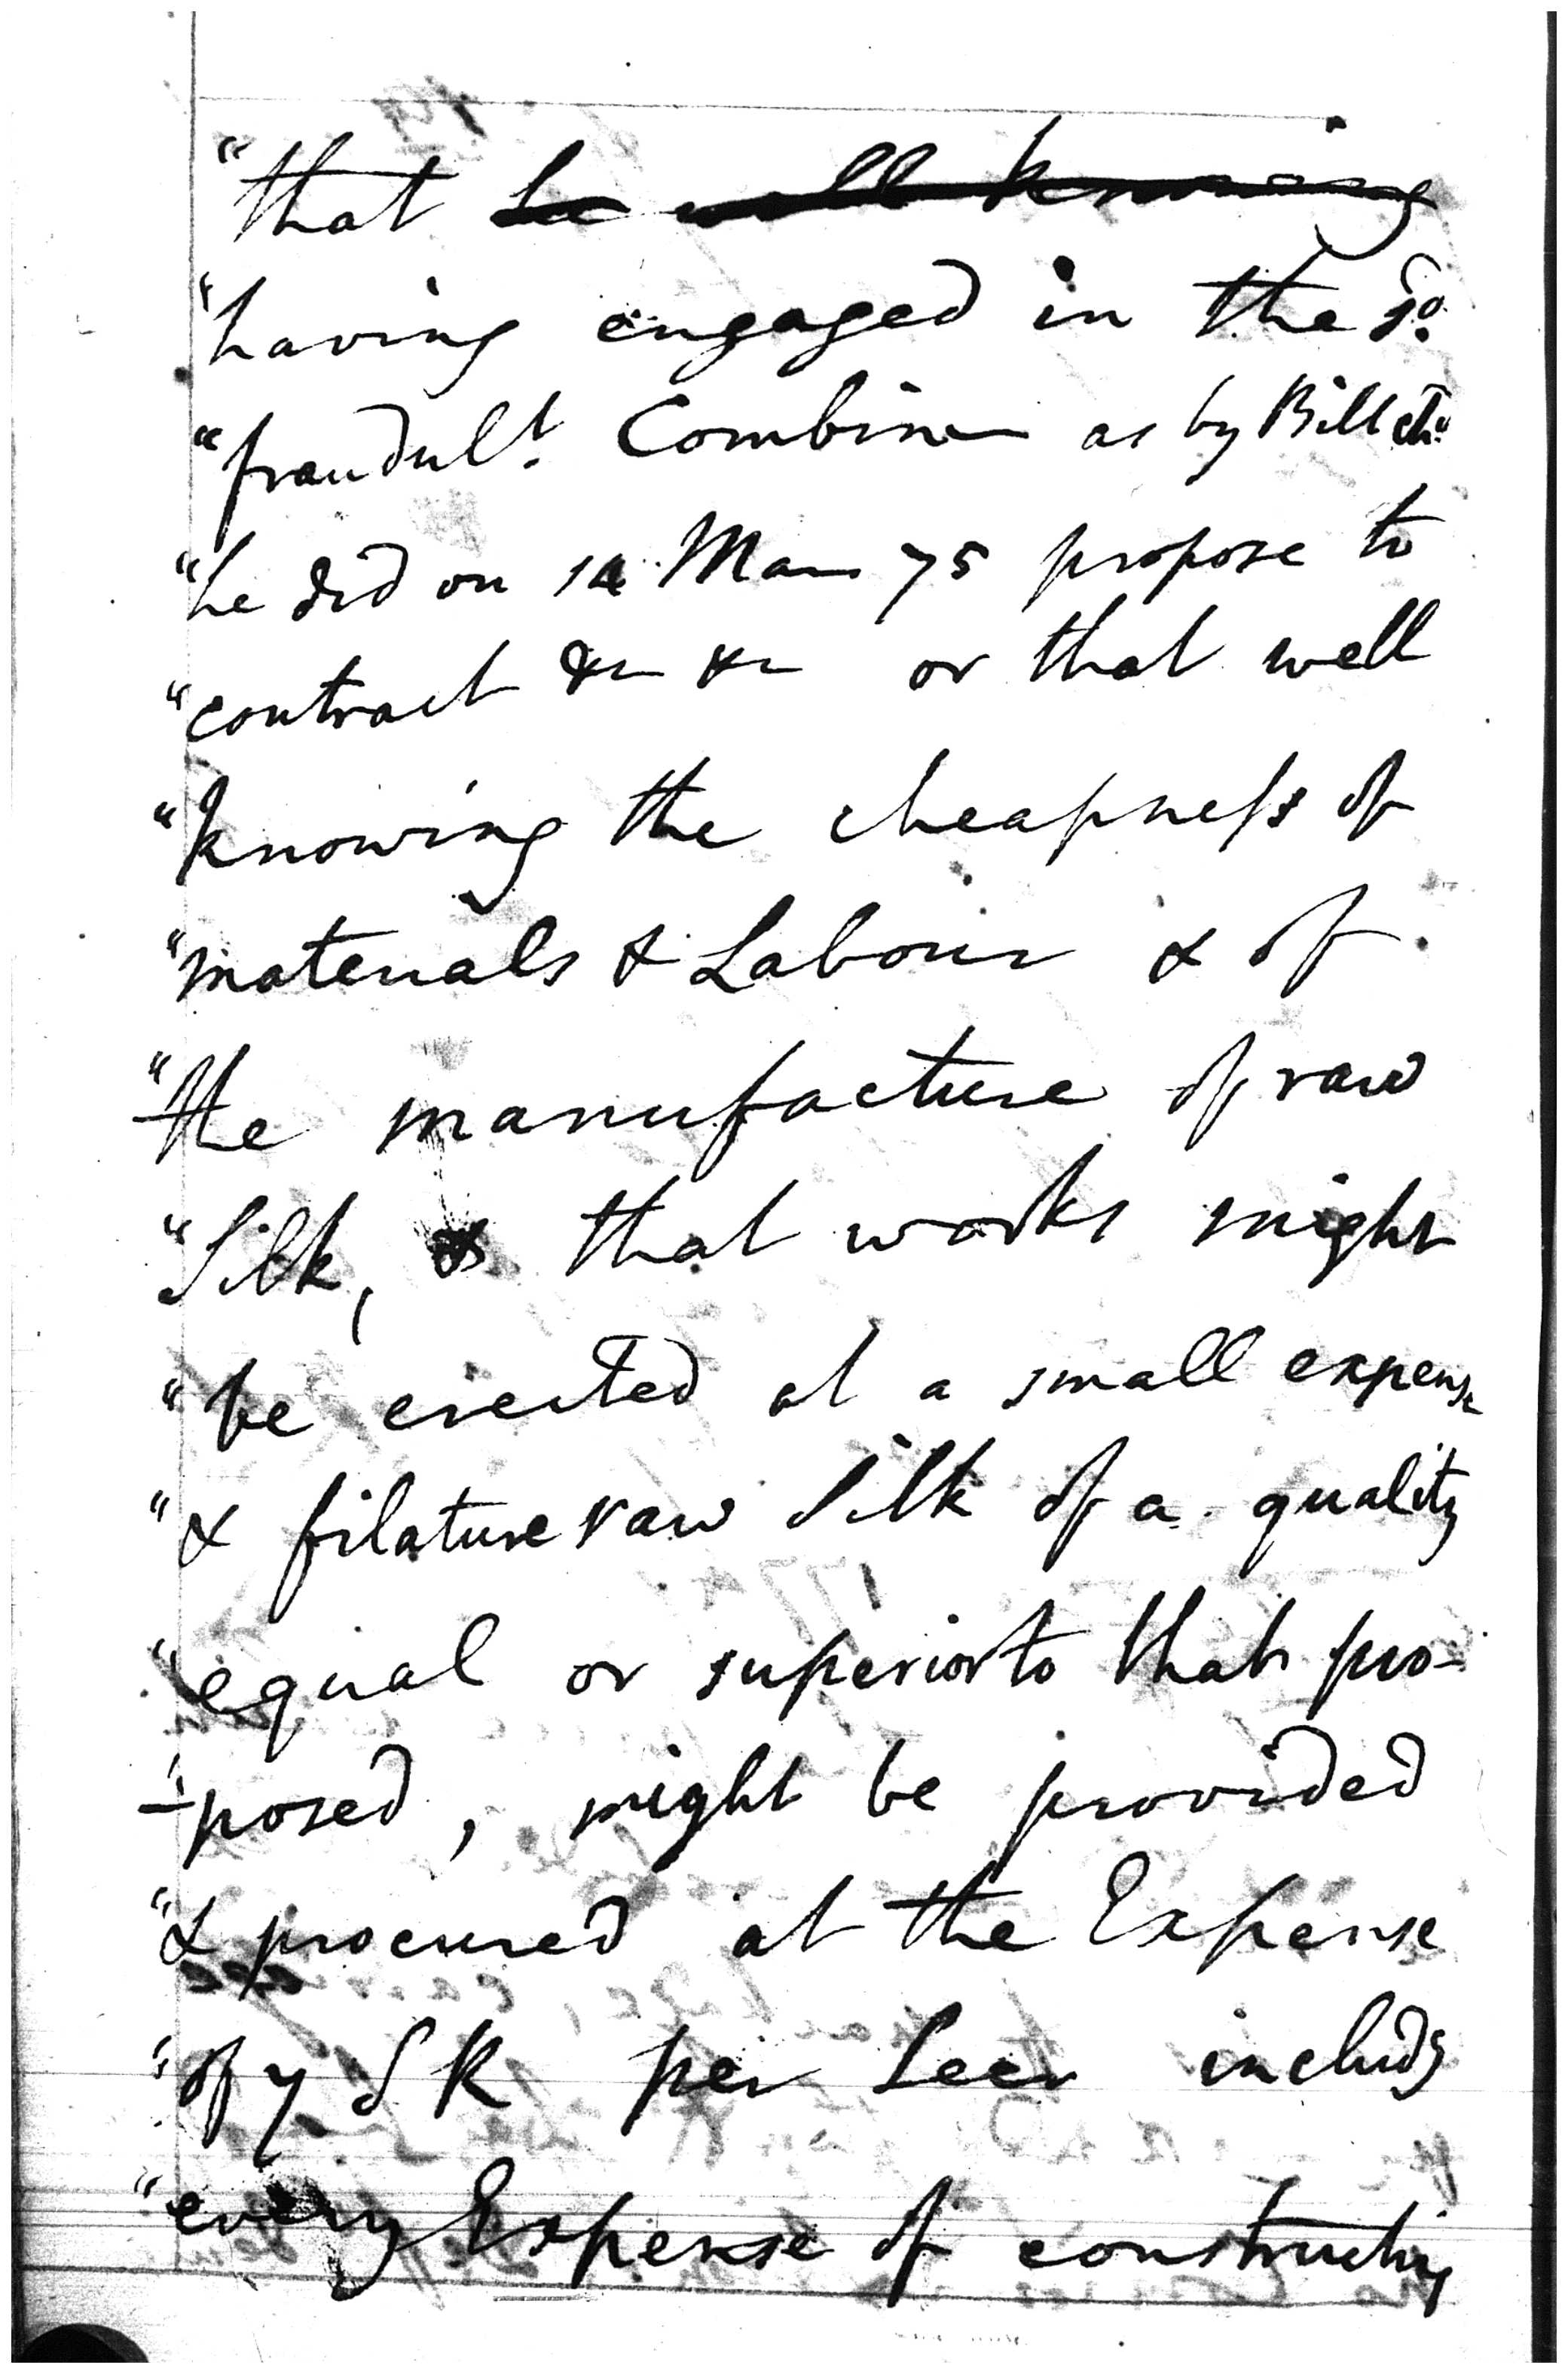 "that he well knowing
"having engaged in the sd.
"fraudult. Combin as by Bill
"he did on 14 Mar 75 propose to
"contract &c &c or that well
"knowing the cheapness of
"materials & Labour & of
"the manufacture of raw
"Silk, & that works might
"be erected at a small expense
"& filature raw Silk of a quality
"equal or superior to that pro-
"-posed, might be provided
"& procured at the Expense
"of 7 S R per Seer includg
"every Expense of constructing